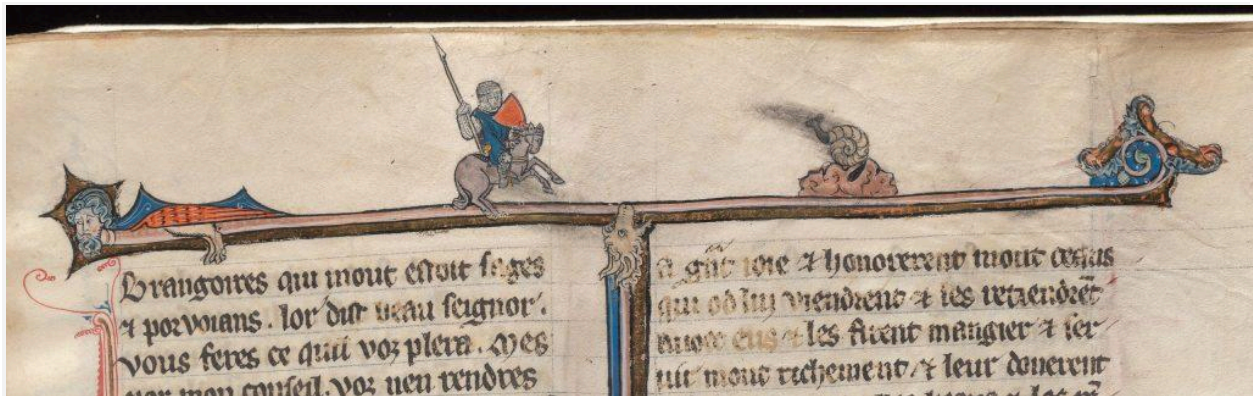 Brangoires qui mout estoit sages
⁊ porvoians . lor dist beau seignor .
vous feres ce quil voz plera . mes
mon conseil . voz nen rendres
a grant ioie ⁊ honorerent mout
qui od lui viendrent ⁊ les
eus ⁊ les firent mangier ⁊ ser
uir mout richement ⁊ leur donerent